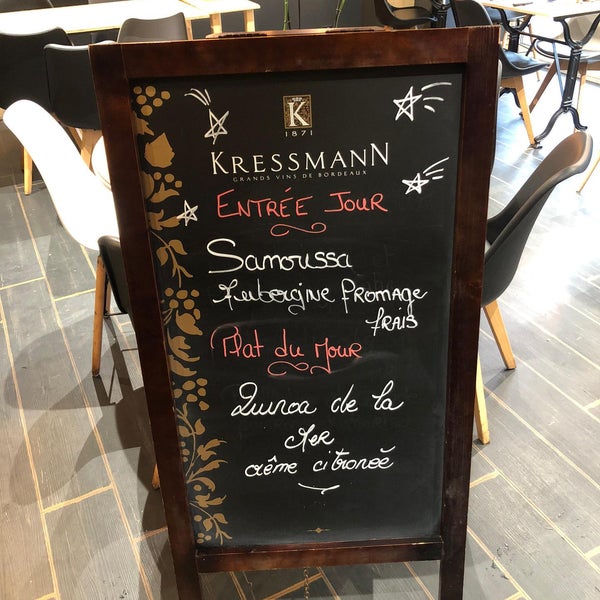 K
1871
KRESSMANN
GRANDS VINS DE BORDEAUX
ENTRÉE JOUR
Samoussa
Aubergine fromage
frais
Plat du Jour
Quinoa de la
Mer
crème citronée